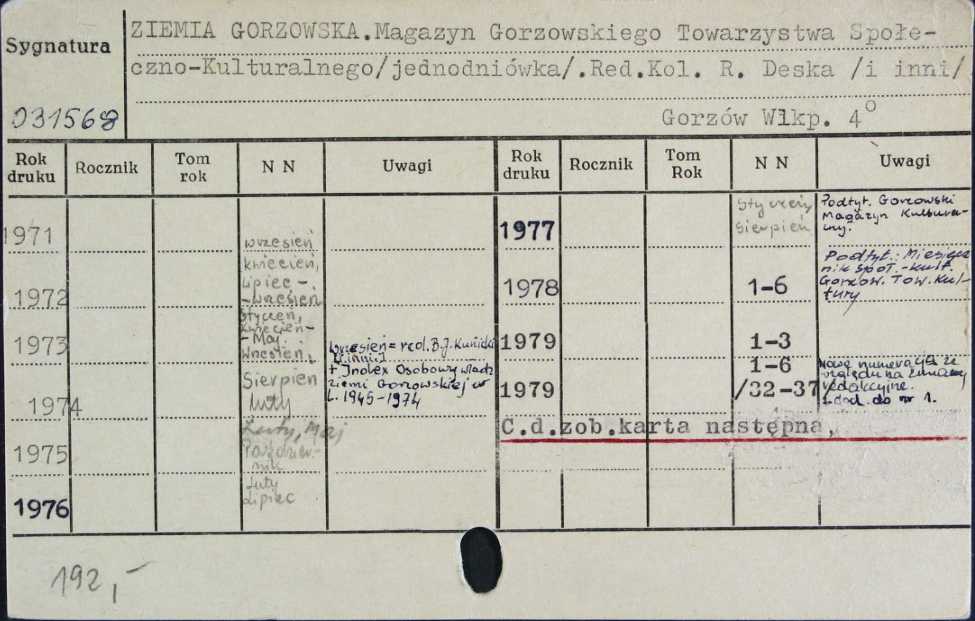 Sygnatura
031568
ZIEMIA GORZOWSKA.Magazyn Gorzowskiego Towarzystwa Społe-
czno-Kulturalnego/jednodniówka/.Red.Kol. R. Deska /i inni/
Gorzów Wlkp. 4°
Rok druku Rocznik Tom rok N N Uwagi Rok druku Rocznik Tom Rok N N Uwagi
1971 wrzesień
1972 kwiecień,
lipiec -
- wrzesień
1973 styczeń,
kwiecień -
- Maj.
wrzesień,
wrzesień = red. B.J. Kunicki
[i inni]
1974 Sierpień
luty
+ Index Osobowy władz
ziemi Gorzowskiej w
l. 1945-1974
1975 Luty, Maj
Październik-
nik
1976 luty
Lipiec
1977 styczeń,
sierpień
Podtyt. Gorzowski
Magazyn Kultural-
ny.
1978 1-6
Podtyt.: Miesięcz-
nik społ.-kult.
Gorzow. Tow. Kul-
tury
1979 1-3
1979 1-6
/32-37
Nowa numeracja ze
względu na zmiany
redakcyjne.
dod. do nr 1.
C.d.zob.karta następna,
192,-